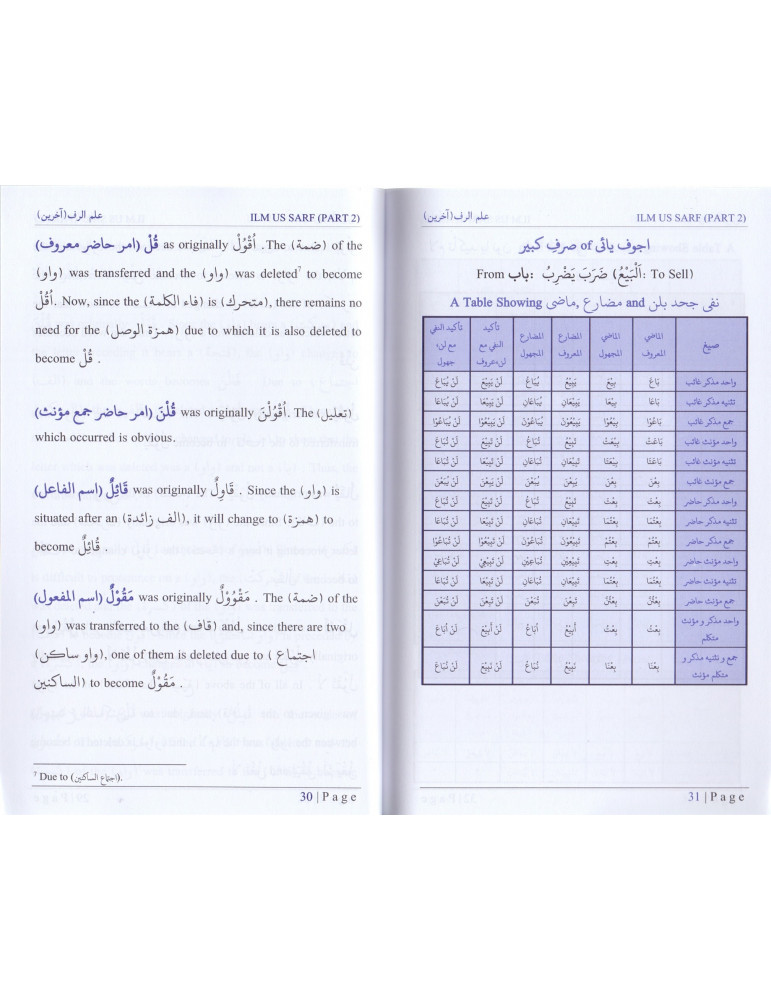 علم الرف(آخرین) ILM US SARF (PART 2)
قُلْ (امر حاضر معروف) as originally اُقْوُلْ . The (ضمة) of the
(واو) was transferred and the (واو) was deleted⁷ to become
اُقُلْ. Now, since the (فاء الكلمة) is (متحرك), there remains no
need for the (همزة الوصل) due to which it is also deleted to
become قُلْ .
قُلْنَ (امر حاضر جمع مؤنث) was originally اُقْوُلْنَ. The (تعليل)
which occurred is obvious.
قَائِلٌ (اسم الفاعل) was originally قَاوِلٌ . Since the (واو) is
situated after an (الف زائدة), it will change to (همزة) to
become قَائِلٌ .
مَقُوْلٌ (اسم المفعول) was originally مَقْوُوْلٌ . The (ضمة) of the
(واو) was transferred to the (قاف) and, since there are two
(واو ساكن), one of them is deleted due to (اجتماع
الساكنين) to become مَقُوْلٌ .
⁷ Due to (اجتماع الساكنين).
30 | P a g e
علم الرف(آخرین) ILM US SARF (PART 2)
اجوف یائی of صرفِ کبیر
From باب: ضَرَبَ يَضْرِبُ (اَلْبَيْعُ: To Sell)
A Table Showing ماضی, مضارع and نفی جحد بلن
صیغ الماضي المعروف الماضي المجهول المضارع المعروف المضارع المجهول تأكيد النفي مع لن تأكيد النفي مع لن
واحد مذکر غائب بَاعَ بِيْعَ يَبِيْعُ يُبَاعُ لَنْ يَبِيْعَ لَنْ يُبَاعَ
تثنیہ مذکر غائب بَاعَا بِيْعَا يَبِيْعَانِ يُبَاعَانِ لَنْ يَبِيْعَا لَنْ يُبَاعَا
جمع مذکر غائب بَاعُوْا بِيْعُوْا يَبِيْعُوْنَ يُبَاعُوْنَ لَنْ يَبِيْعُوْا لَنْ يُبَاعُوْا
واحد مؤنث غائب بَاعَتْ بِيْعَتْ تَبِيْعُ تُبَاعُ لَنْ تَبِيْعَ لَنْ تُبَاعَ
تثنیہ مؤنث غائب بَاعَتَا بِيْعَتَا تَبِيْعَانِ تُبَاعَانِ لَنْ تَبِيْعَا لَنْ تُبَاعَا
جمع مؤنث غائب بِعْنَ بِعْنَ يَبِعْنَ يُبَعْنَ لَنْ يَبِعْنَ لَنْ يُبَعْنَ
واحد مذکر حاضر بِعْتَ بِعْتَ تَبِيْعُ تُبَاعُ لَنْ تَبِيْعَ لَنْ تُبَاعَ
تثنیہ مذکر حاضر بِعْتُمَا بِعْتُمَا تَبِيْعَانِ تُبَاعَانِ لَنْ تَبِيْعَا لَنْ تُبَاعَا
جمع مذکر حاضر بِعْتُمْ بِعْتُمْ تَبِيْعُوْنَ تُبَاعُوْنَ لَنْ تَبِيْعُوْا لَنْ تُبَاعُوْا
واحد مؤنث حاضر بِعْتِ بِعْتِ تَبِيْعِيْنَ تُبَاعِيْنَ لَنْ تَبِيْعِيْ لَنْ تُبَاعِيْ
تثنیہ مؤنث حاضر بِعْتُمَا بِعْتُمَا تَبِيْعَانِ تُبَاعَانِ لَنْ تَبِيْعَا لَنْ تُبَاعَا
جمع مؤنث حاضر بِعْتُنَّ بِعْتُنَّ تَبِعْنَ تُبَعْنَ لَنْ تَبِعْنَ لَنْ تُبَعْنَ
واحد مذکر و مؤنث متکلم بِعْتُ بِعْتُ أَبِيْعُ أُبَاعُ لَنْ أَبِيْعَ لَنْ أُبَاعَ
جمع و تثنیہ مذکر و متکلم مؤنث بِعْنَا بِعْنَا نَبِيْعُ نُبَاعُ لَنْ نَبِيْعَ لَنْ نُبَاعَ
31 | P a g e